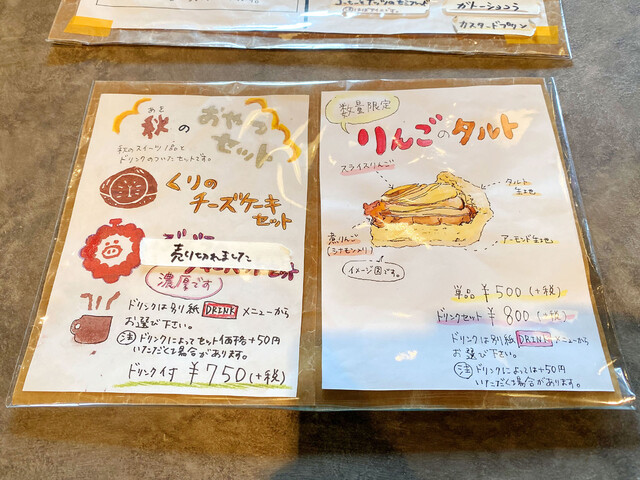 ガトーショコラ
カスタードプリン
秋の
あき
おやつ
セット
秋のスイーツ1品と
ドリンクのついたセットです。
くりの
チーズケーキ
セット
売り切れました
セット
濃厚です
ドリンクは別紙DRINKメニューから
お選び下さい。
注 ドリンクによってセット価格+50円
いただく場合があります。
ドリンク付 ¥750(+税)
数量限定
りんごのタルト
スライスりんご
タルト
生地
煮りんご
(シナモン入り)
アーモンド生地
イメージ図です。
単品 ¥500(+税)
ドリンクセット ¥800(+税)
ドリンクは別紙DRINKメニューから
お選び下さい。
注 ドリンクによっては+50円
いただく場合があります。